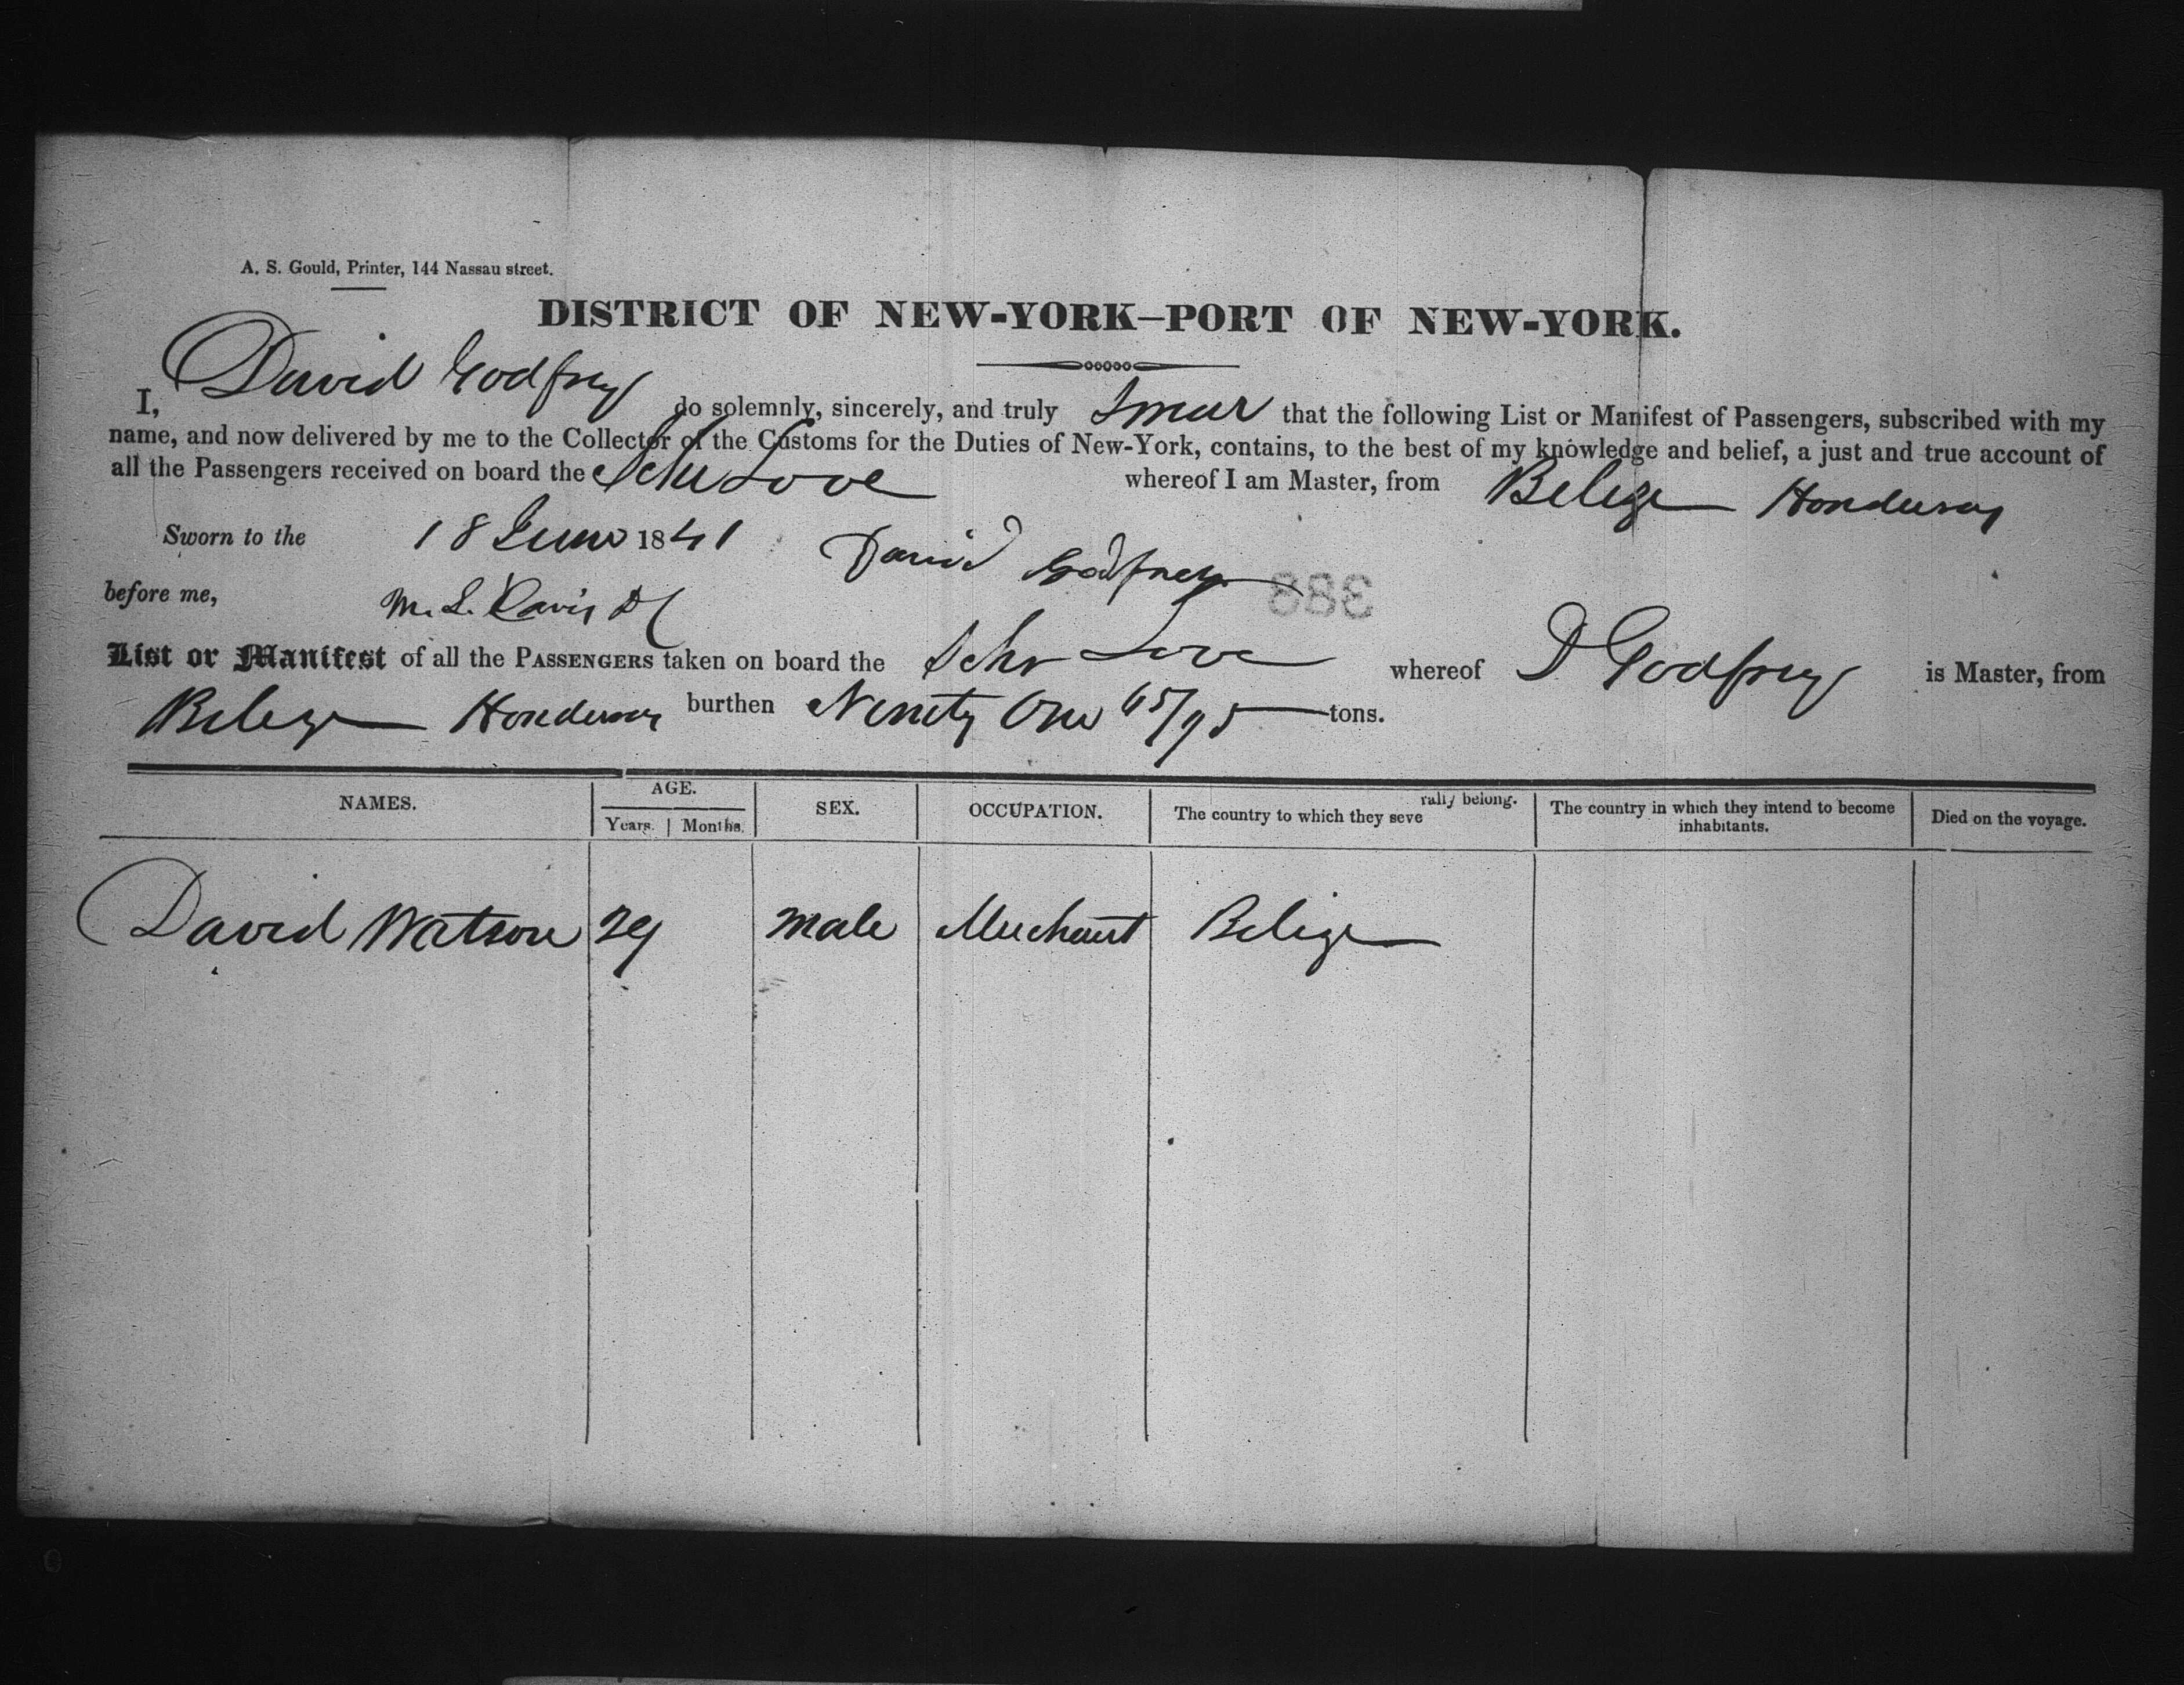 A. S. Gould, Printer, 144 Nassau street.
DISTRICT OF NEW-YORK—PORT OF NEW-YORK.
I, David Godfrey do solemnly, sincerely, and truly Swear that the following List or Manifest of Passengers, subscribed with my
name, and now delivered by me to the Collector of the Customs for the Duties of New-York, contains, to the best of my knowledge and belief, a just and true account of
all the Passengers received on board the Schr Love whereof I am Master, from Beleze Honduras
Sworn to the 18 June 1841 David Godfrey
before me, M. L. Davis DC
383
List or Manifest of all the PASSENGERS taken on board the Schr Love whereof D Godfrey is Master, from
Beleze Honduras burthen Ninety One 65/95 tons.
NAMES. AGE. Years. Months. SEX. OCCUPATION. The country to which they severally belong. The country in which they intend to become inhabitants. Died on the voyage.
David Watson 29 male Merchant Belize